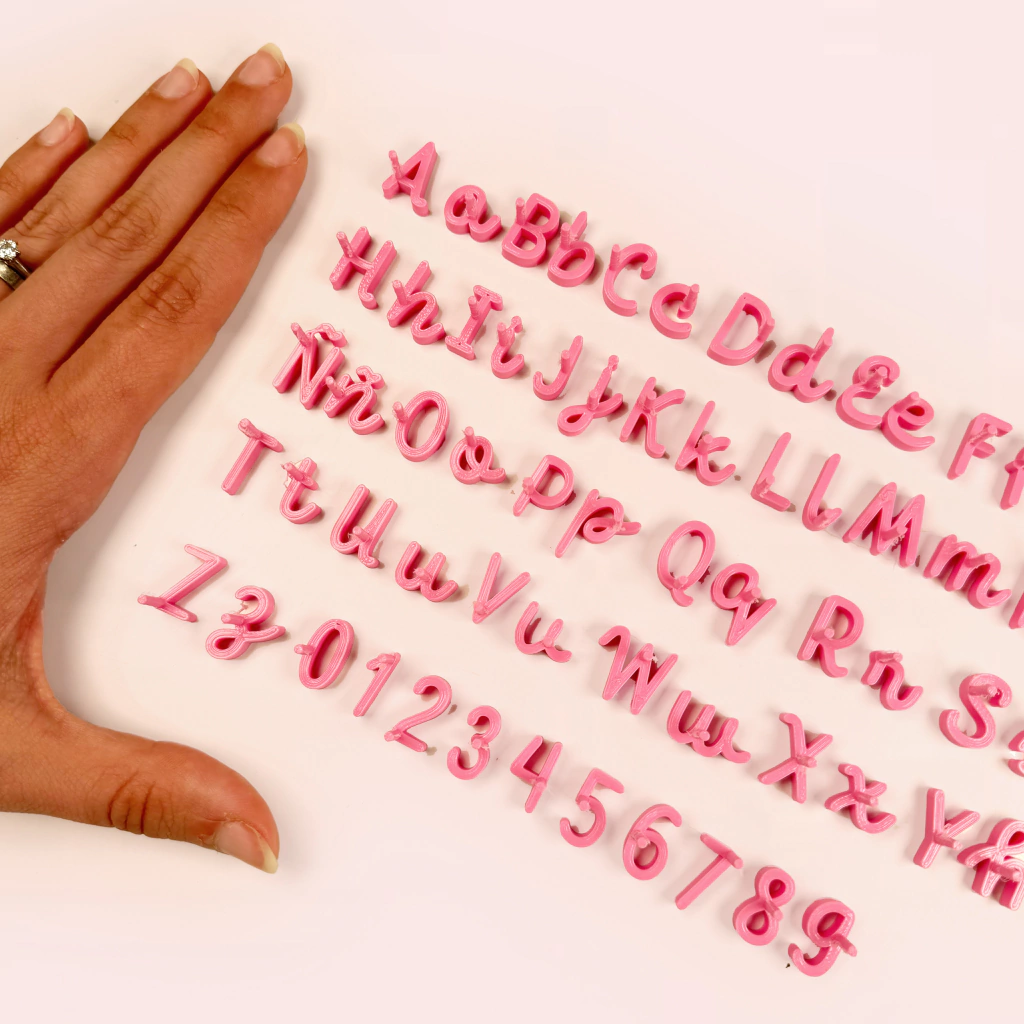 A a B b C c D d E e F
H h I i J j K k L l M m
Ñ ñ O o P p Q q R r S
T t U u V v W w X x Y
Z z 0 1 2 3 4 5 6 7 8 9